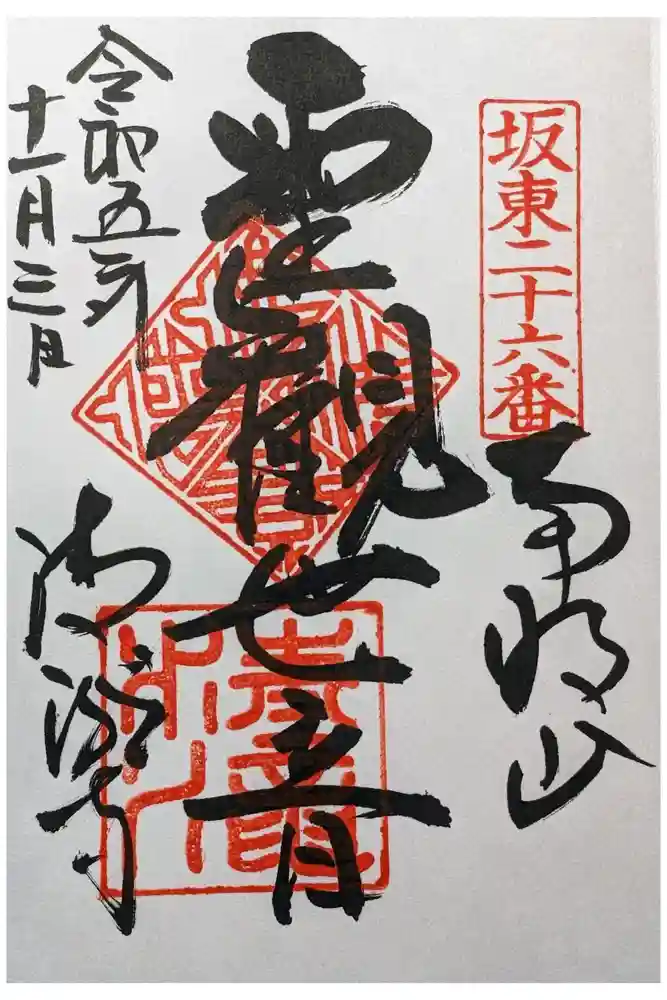 坂東二十六番
南明山
聖觀世音
令和五年
十一月三日
清瀧寺